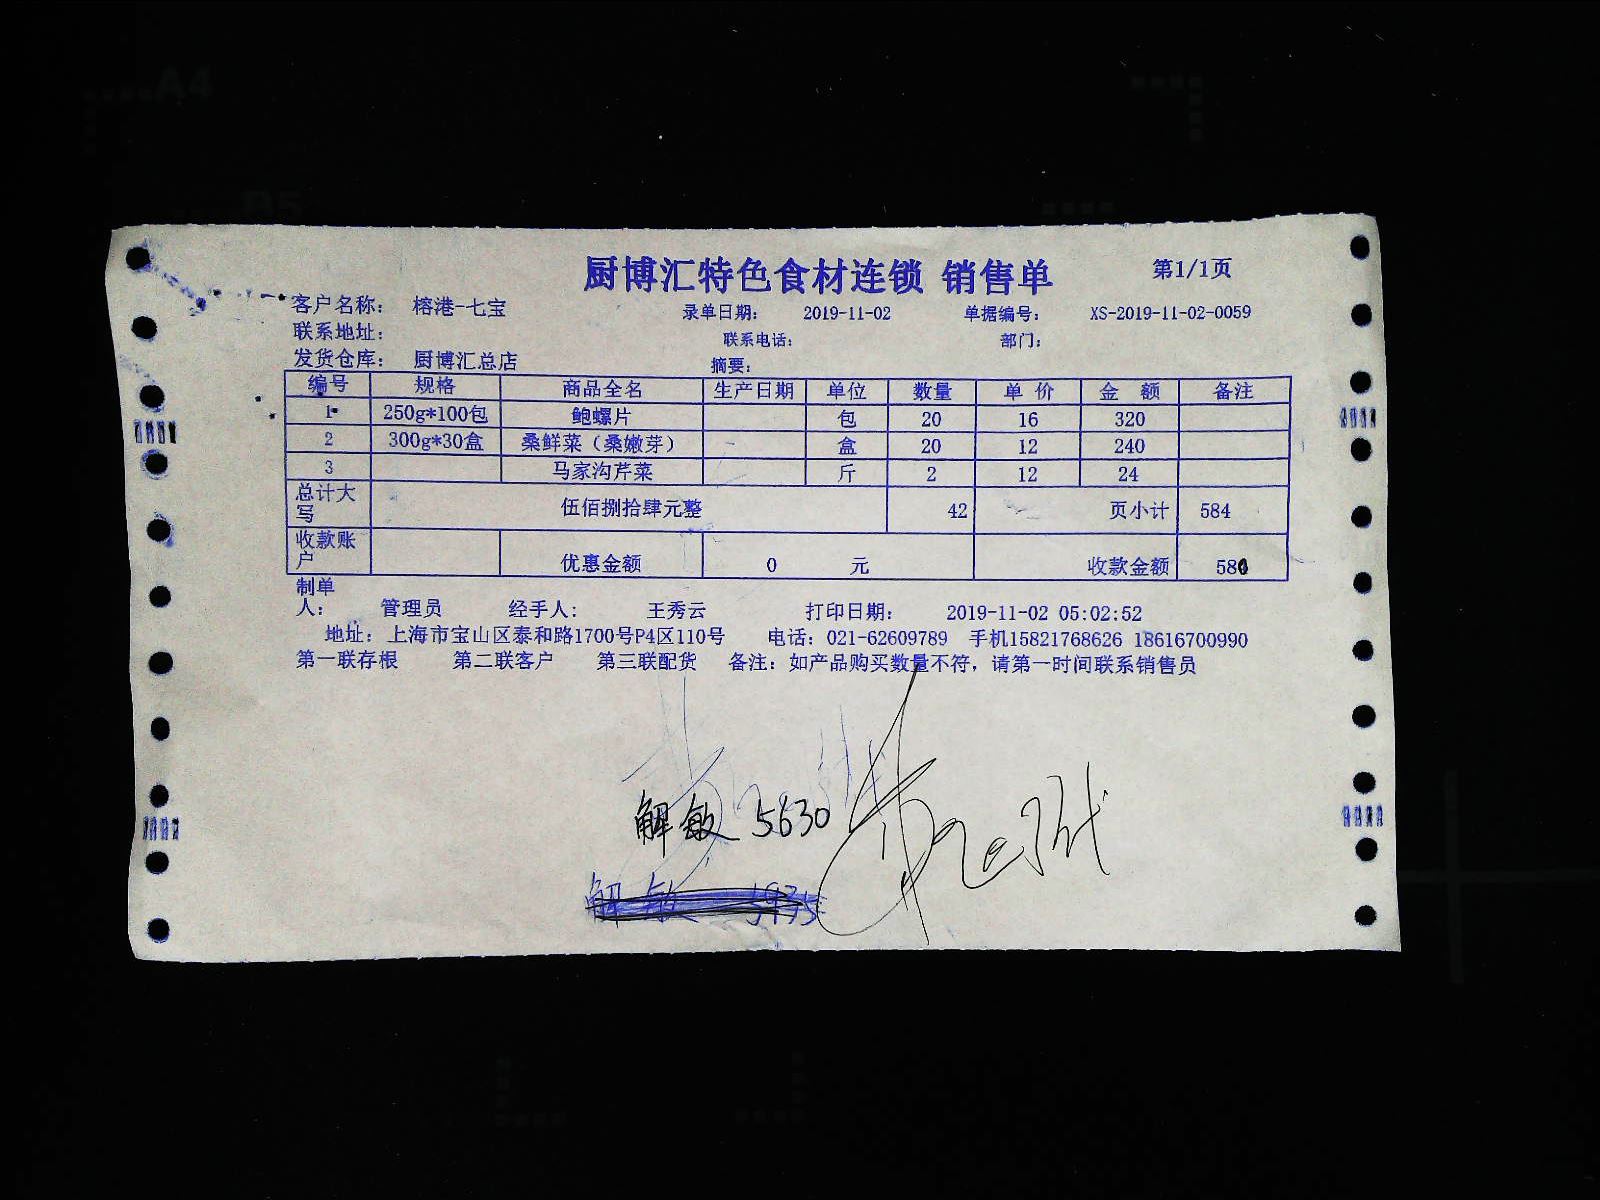 厨博汇特色食材连锁 销售单 第1/1页
客户名称: 榕港-七宝 录单日期: 2019-11-02 单据编号: XS-2019-11-02-0059
联系地址: 联系电话: 部门:
发货仓库: 厨博汇总店 摘要:
编号 规格 商品全名 生产日期 单位 数量 单 价 金 额 备注
1 250g*100包 鲍螺片 包 20 16 320
2 300g*30盒 桑鲜菜（桑嫩芽） 盒 20 12 240
3 马家沟芹菜 斤 2 12 24
总计大写 伍佰捌拾肆元整 42 页小计 584
收款账户 优惠金额 0 元 收款金额
制单人: 管理员 经手人: 王秀云 打印日期: 2019-11-02 05:02:52
地址: 上海市宝山区泰和路1700号P4区110号 电话: 021-62609789 手机15821768626 18616700990
第一联存根 第二联客户 第三联配货 备注: 如产品购买数量不符, 请第一时间联系销售员
解敏 5630
解敏